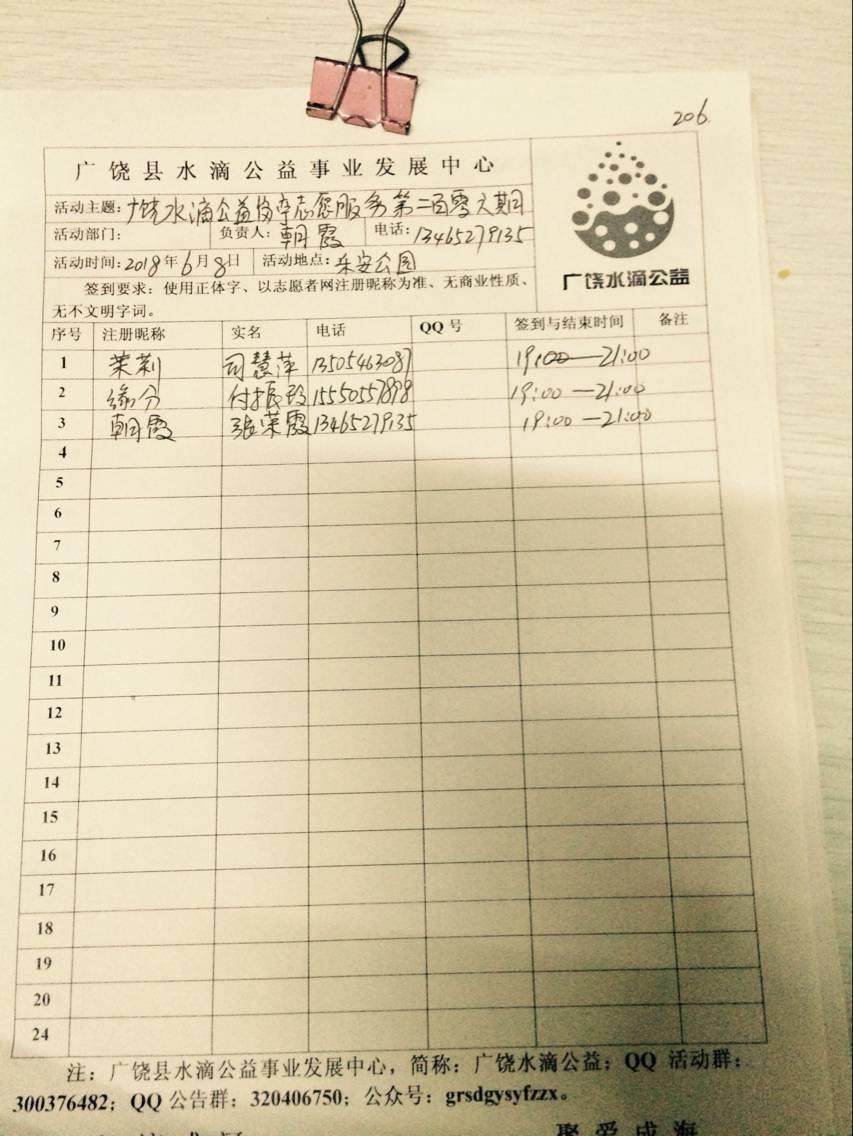 206.
广饶县水滴公益事业发展中心
活动主题:广饶水滴公益岗亭志愿服务第二百零六期
活动部门: 负责人:朝霞 电话:13465279135
活动时间:2018年6月8日 活动地点:乐安公园
签到要求:使用正体字、以志愿者网注册昵称为准、无商业性质、
无不文明字词。
广饶水滴公益
序号 注册昵称 实名 电话 QQ号 签到与结束时间 备注
1 茉莉 司慧萍 13505463087 19:00—21:00
2 缘分 付振 15550557898 19:00—21:00
3 朝霞 张荣霞 13465279135 19:00—21:00
4
5
6
7
8
9
10
11
12
13
14
15
16
17
18
19
20
24
注:广饶县水滴公益事业发展中心,简称:广饶水滴公益;QQ 活动群:
300376482;QQ 公告群:320406750;公众号:grsdgysyfzzx。
聚爱成海